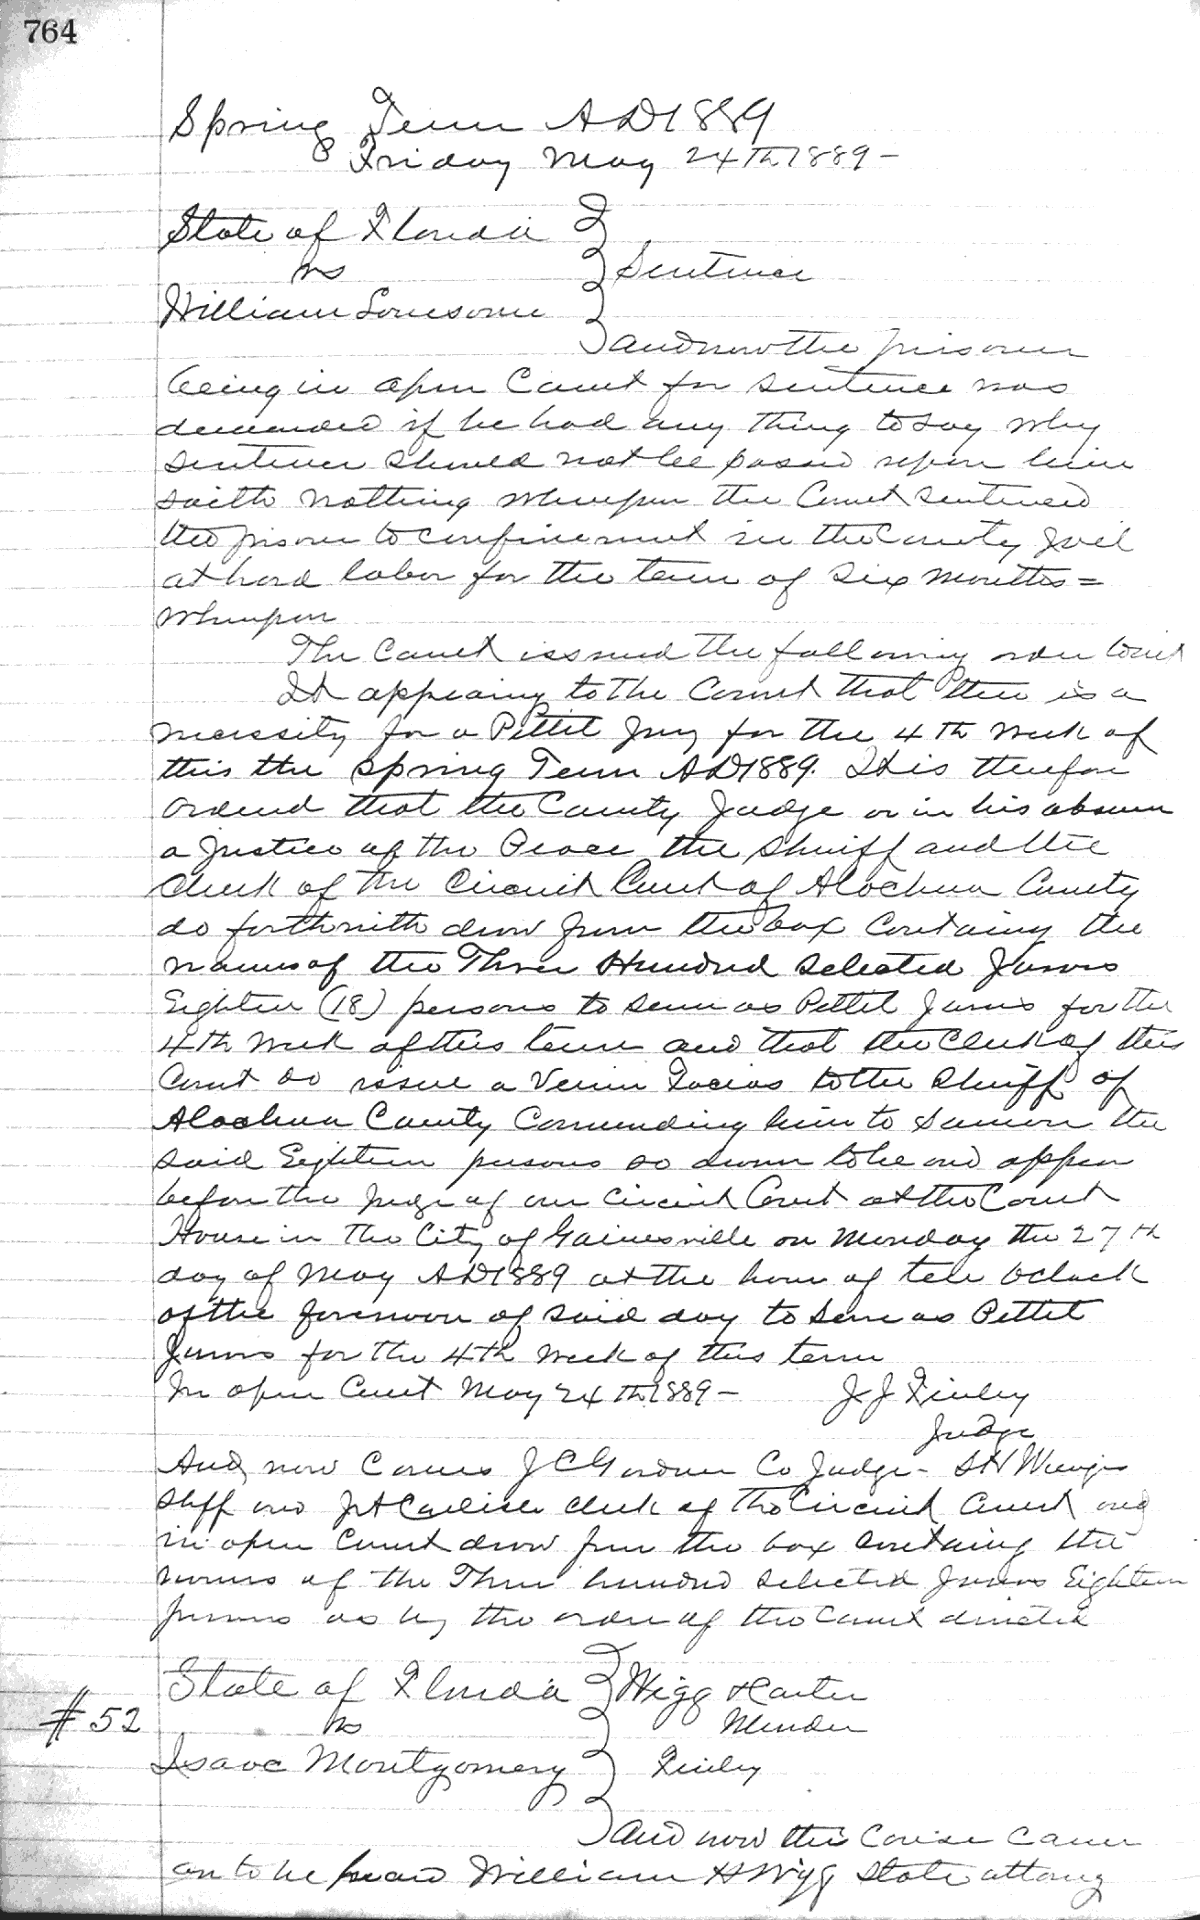 764
Spring Term AD 1889
Friday May 24th 1889 -
State of Florida
vs
Sentence
William Lonesome
and now the prisoner
being in open Court for sentence was
demanded if he had any thing to say why
sentence should not be passed upon him
saith nothing whereupon the Court sentenced
the prisoner to confinement in the County Jail
at hard labor for the term of six months =
Whereupon
The Court issued the following order towit
It appearing to the Court that there is a
necessity for a Pettit Jury for the 4th week of
this the Spring Term AD 1889. It is therefore
ordered that the County Judge or in his absence
a Justice of the Peace the Sheriff and the
Clerk of the Circuit Court of Alachua County
do forthwith draw from the box containing the
names of the Three Hundred selected Jurors
Eighteen (18) persons to serve as Pettit Jurors for the
4th week of this term and that the Clerk of this
Court do issue a Venire Facias to the Sheriff of
Alachua County Commanding him to Summon the
said Eighteen persons so drawn to be and appear
before the Judge of our Circuit Court at the Court
House in the City of Gainesville on Monday the 27th
day of May AD 1889 at the hour of ten Oclock
of the forenoon of said day to serve as Pettit
Jurors for the 4th week of this term
In open Court May 24th 1889 - J J Finley
Judge
And now Comes J C Gardner Co Judge - S H Wienges
Shff and J A Carlisle Clerk of the Circuit Court and
in open Court draw from the box containing the
names of the Three hundred selected Jurors Eighteen
Jurors as by the order of the Court directed
State of Florida Wigg & Carter
#52
vs
Isaac Montgomery Finley
and now this Cause Came
on to be heard William H Wigg State attorney